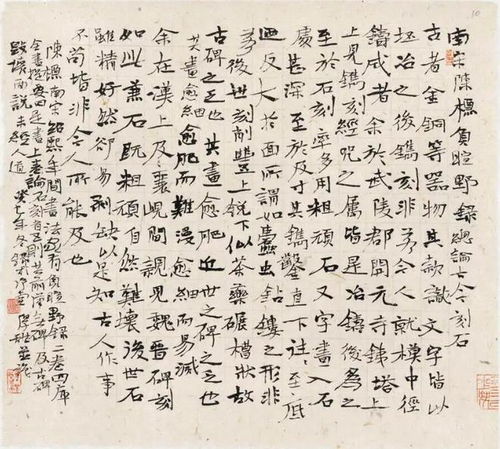 南宋陳槱負暄野錄總論古今刻石
古者金銅等器物其款識文字皆以
坯冶之後鐫刻非若今人就模中徑
鑄成者余於武陵郡開元寺鐵塔上
上見鐫刻經咒之屬皆是冶鑄後為之
至於石刻率多用粗頑石又字畫入石
處甚深至於及寸其鐫鑿直下往至底
迺反大於面所謂如蠹虫鉆鏤之形非
若後世刻削豐上銳下似茶藥碾槽狀故
古碑之乏也其畫愈肥近世之碑之乏也
其畫愈細愈肥而難漫愈細而易滅
余在漢上及襄峴間親見魏晉碑刻
如此兼石既粗頑自然難壞後世石
雖精好然卻易剝缺以是知古人作事
不苟皆非今人所能及也
陳槱南宋紹熙年間書法家有負暄野錄二卷四庫
全書提要曰是書上卷論石刻及古碑
毀壞而說未經人道